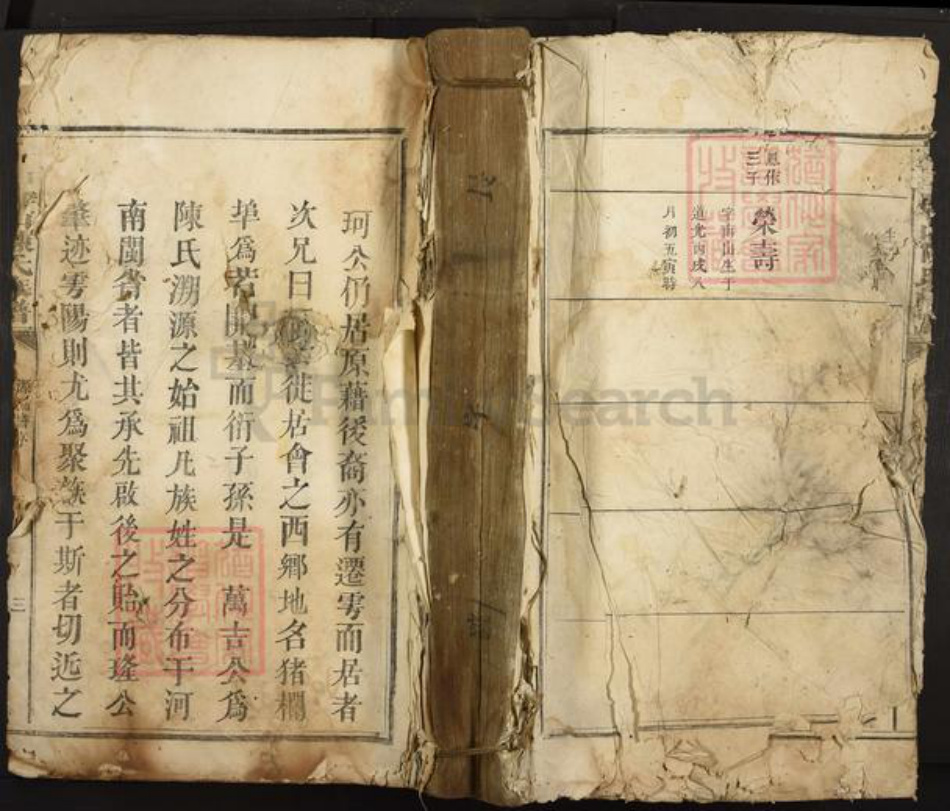 思作
三子
榮壽
字南山生于
道光丙戌八
月初五寅時
珂公仍居原藉後裔亦有遷雩而居者
次兄曰 徒居會之西鄉地名猪欄
埠爲 開基而衍子孫是 萬吉公爲
陳氏溯源之始祖凡族姓之分布于河
南閩省者皆其承先啟後之貽而瑝公
肇迹雩陽則尤爲聚族于斯者切近之
三
FamilySearch